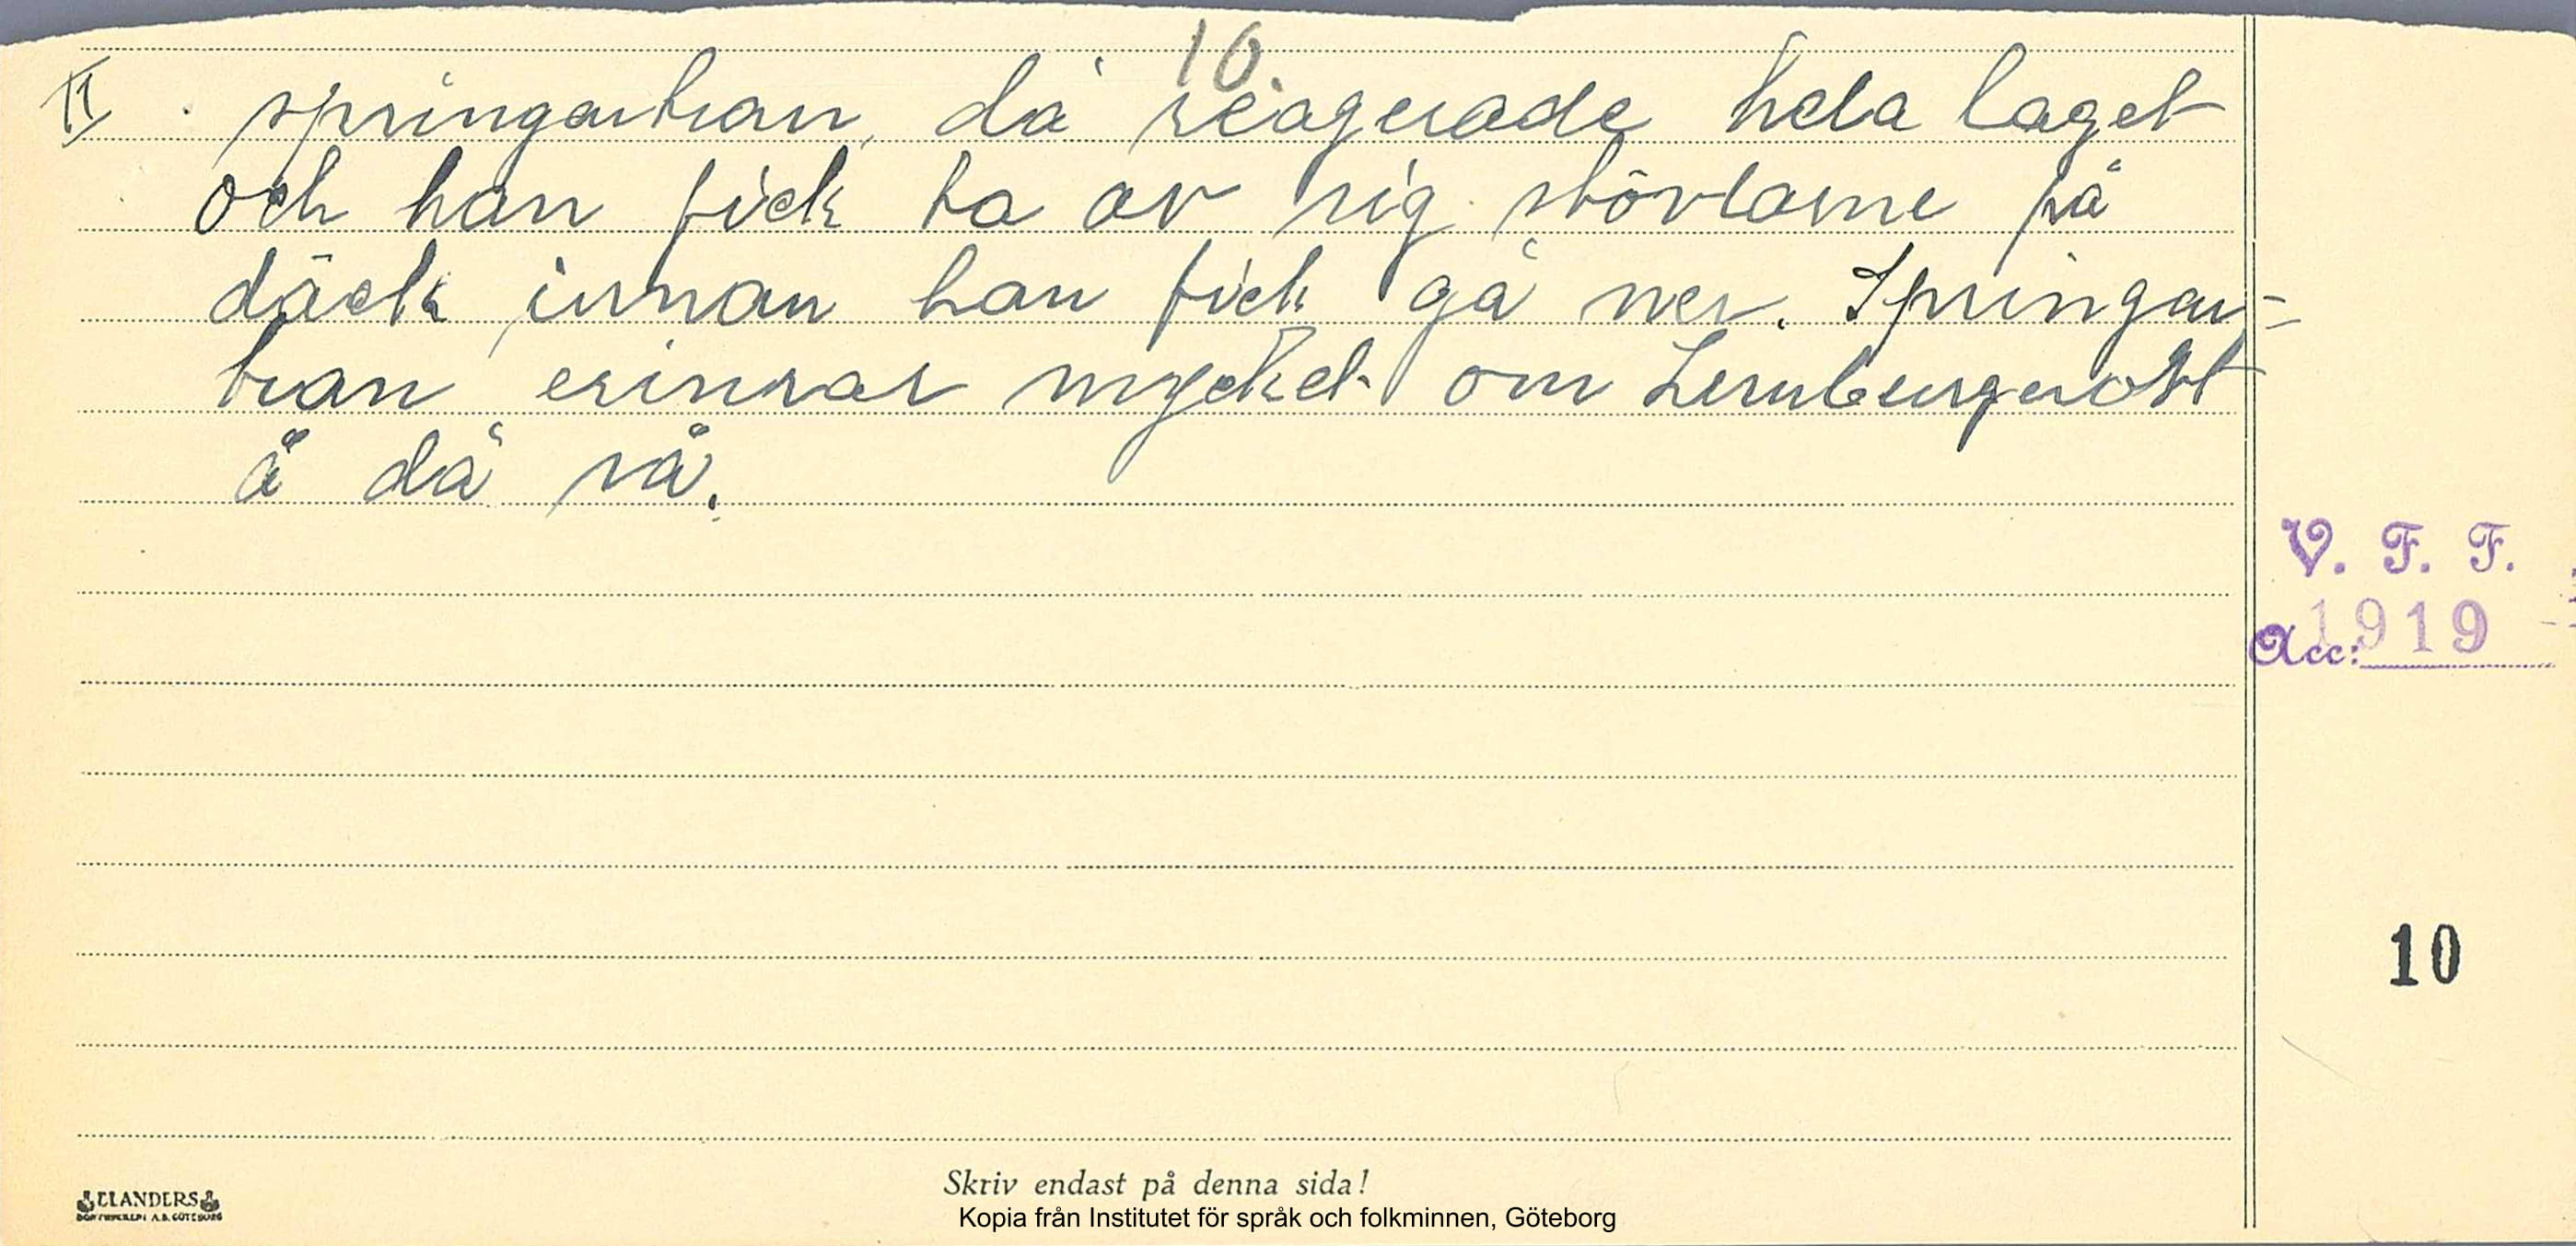 10.
II springartran, då reagerade hela laget
och han fick ta av sig stövlarne på
däck innan han fick gå ner. Springar=
tran erinrar mycket om Limburgerost
å då rå.
V. F. F.
Acc: 1919
10
ELANDERS
BOKTRYCKERI A.B. GÖTEBORG
Skriv endast på denna sida!
Kopia från Institutet för språk och folkminnen, Göteborg